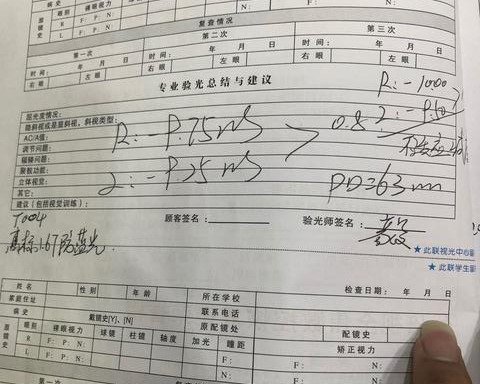 病史 眼别 裸眼视力
R F: P: N:
L F: P: N:
复查情况
第一次 第二次 第三次
时间: 年 月 日 时间: 年 月 日 时间: 年 月 日
右眼 左眼 右眼 左眼 右眼 左眼
专业验光总结与建议
R:-10.00
屈光度情况:
隐斜视或是显斜视,斜视类型:
AC/A值:
R:-9.75 DS
0.8
调节问题:
辐辏问题:
聚散功能:
立体视觉:
L:-9.25 DS
PD=63mm
其它:
建议(包括视觉训练):
顾客签名: 验光师签名:
1.67防蓝光
★此联视光中心
★此联学生
姓名 性别 年龄 所在学校 检查日期: 年 月 日
家庭住址 联系电话
病史 戴镜史[Y]、[N] 原配镜处 配镜史
眼别 裸眼视力 球镜 柱镜 轴度 加光 瞳距 矫正视力
R F: P: N: F: F:
L F: P: N: N: N:
第一次